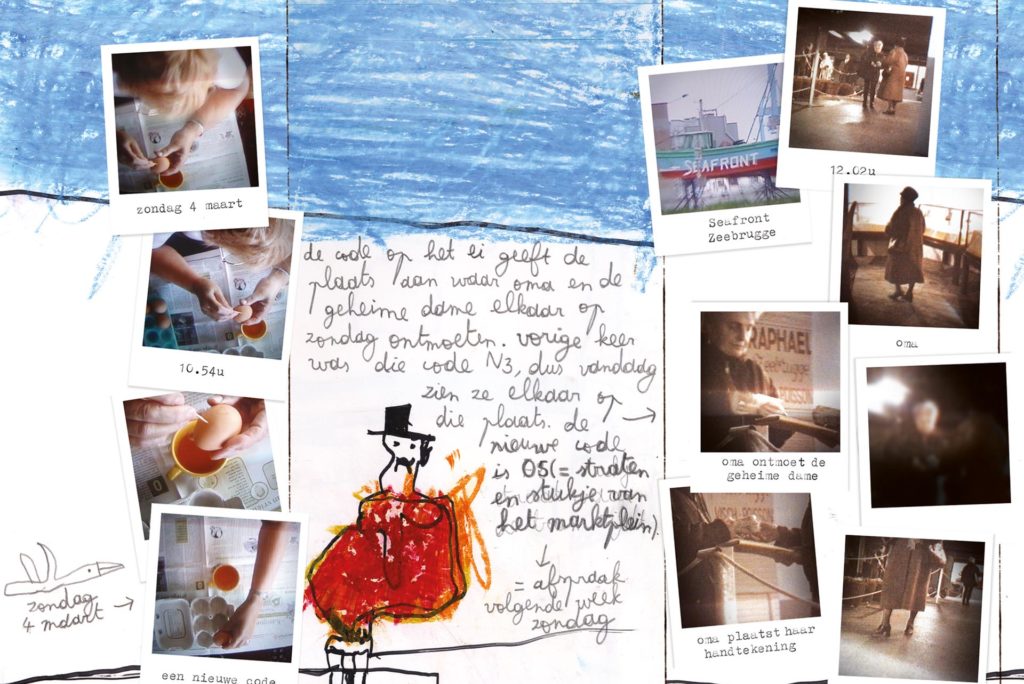 zondag 4 maart
10.54u
een nieuwe code
zondag
4 maart →
de code op het ei geeft de
plaats aan waar oma en de
geheime dame elkaar op
zondag ontmoeten. vorige keer
was die code N3, dus vandaag
zien ze elkaar op →
die plaats. de
nieuwe code
is O5(= straten
en stukje van
het marktplein).
↓
= afspraak
volgende week
zondag
SEAFRONT
Seafront
Zeebrugge
12.02u
oma
RAPHAEL
Zeebrugge
POISSON
oma ontmoet de
geheime dame
VISCH-POISSON
oma plaatst haar
handtekening